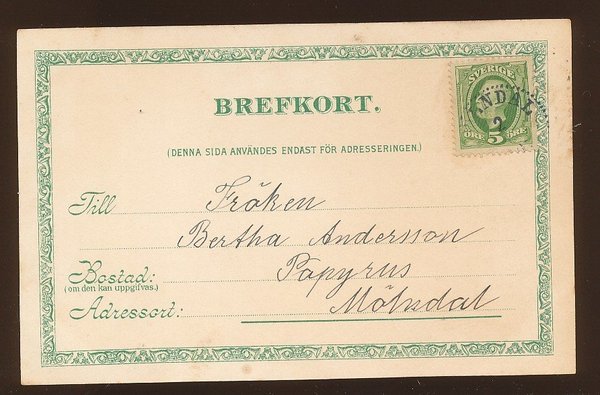 SVERIGE
ÖRE 5 ÖRE
BREFKORT.
(DENNA SIDA ANVÄNDES ENDAST FÖR ADRESSERINGEN.)
Till Fröken
Bertha Andersson
Bostad: Papyrus
(om den kan uppgifvas.)
Adressort: Mölndal